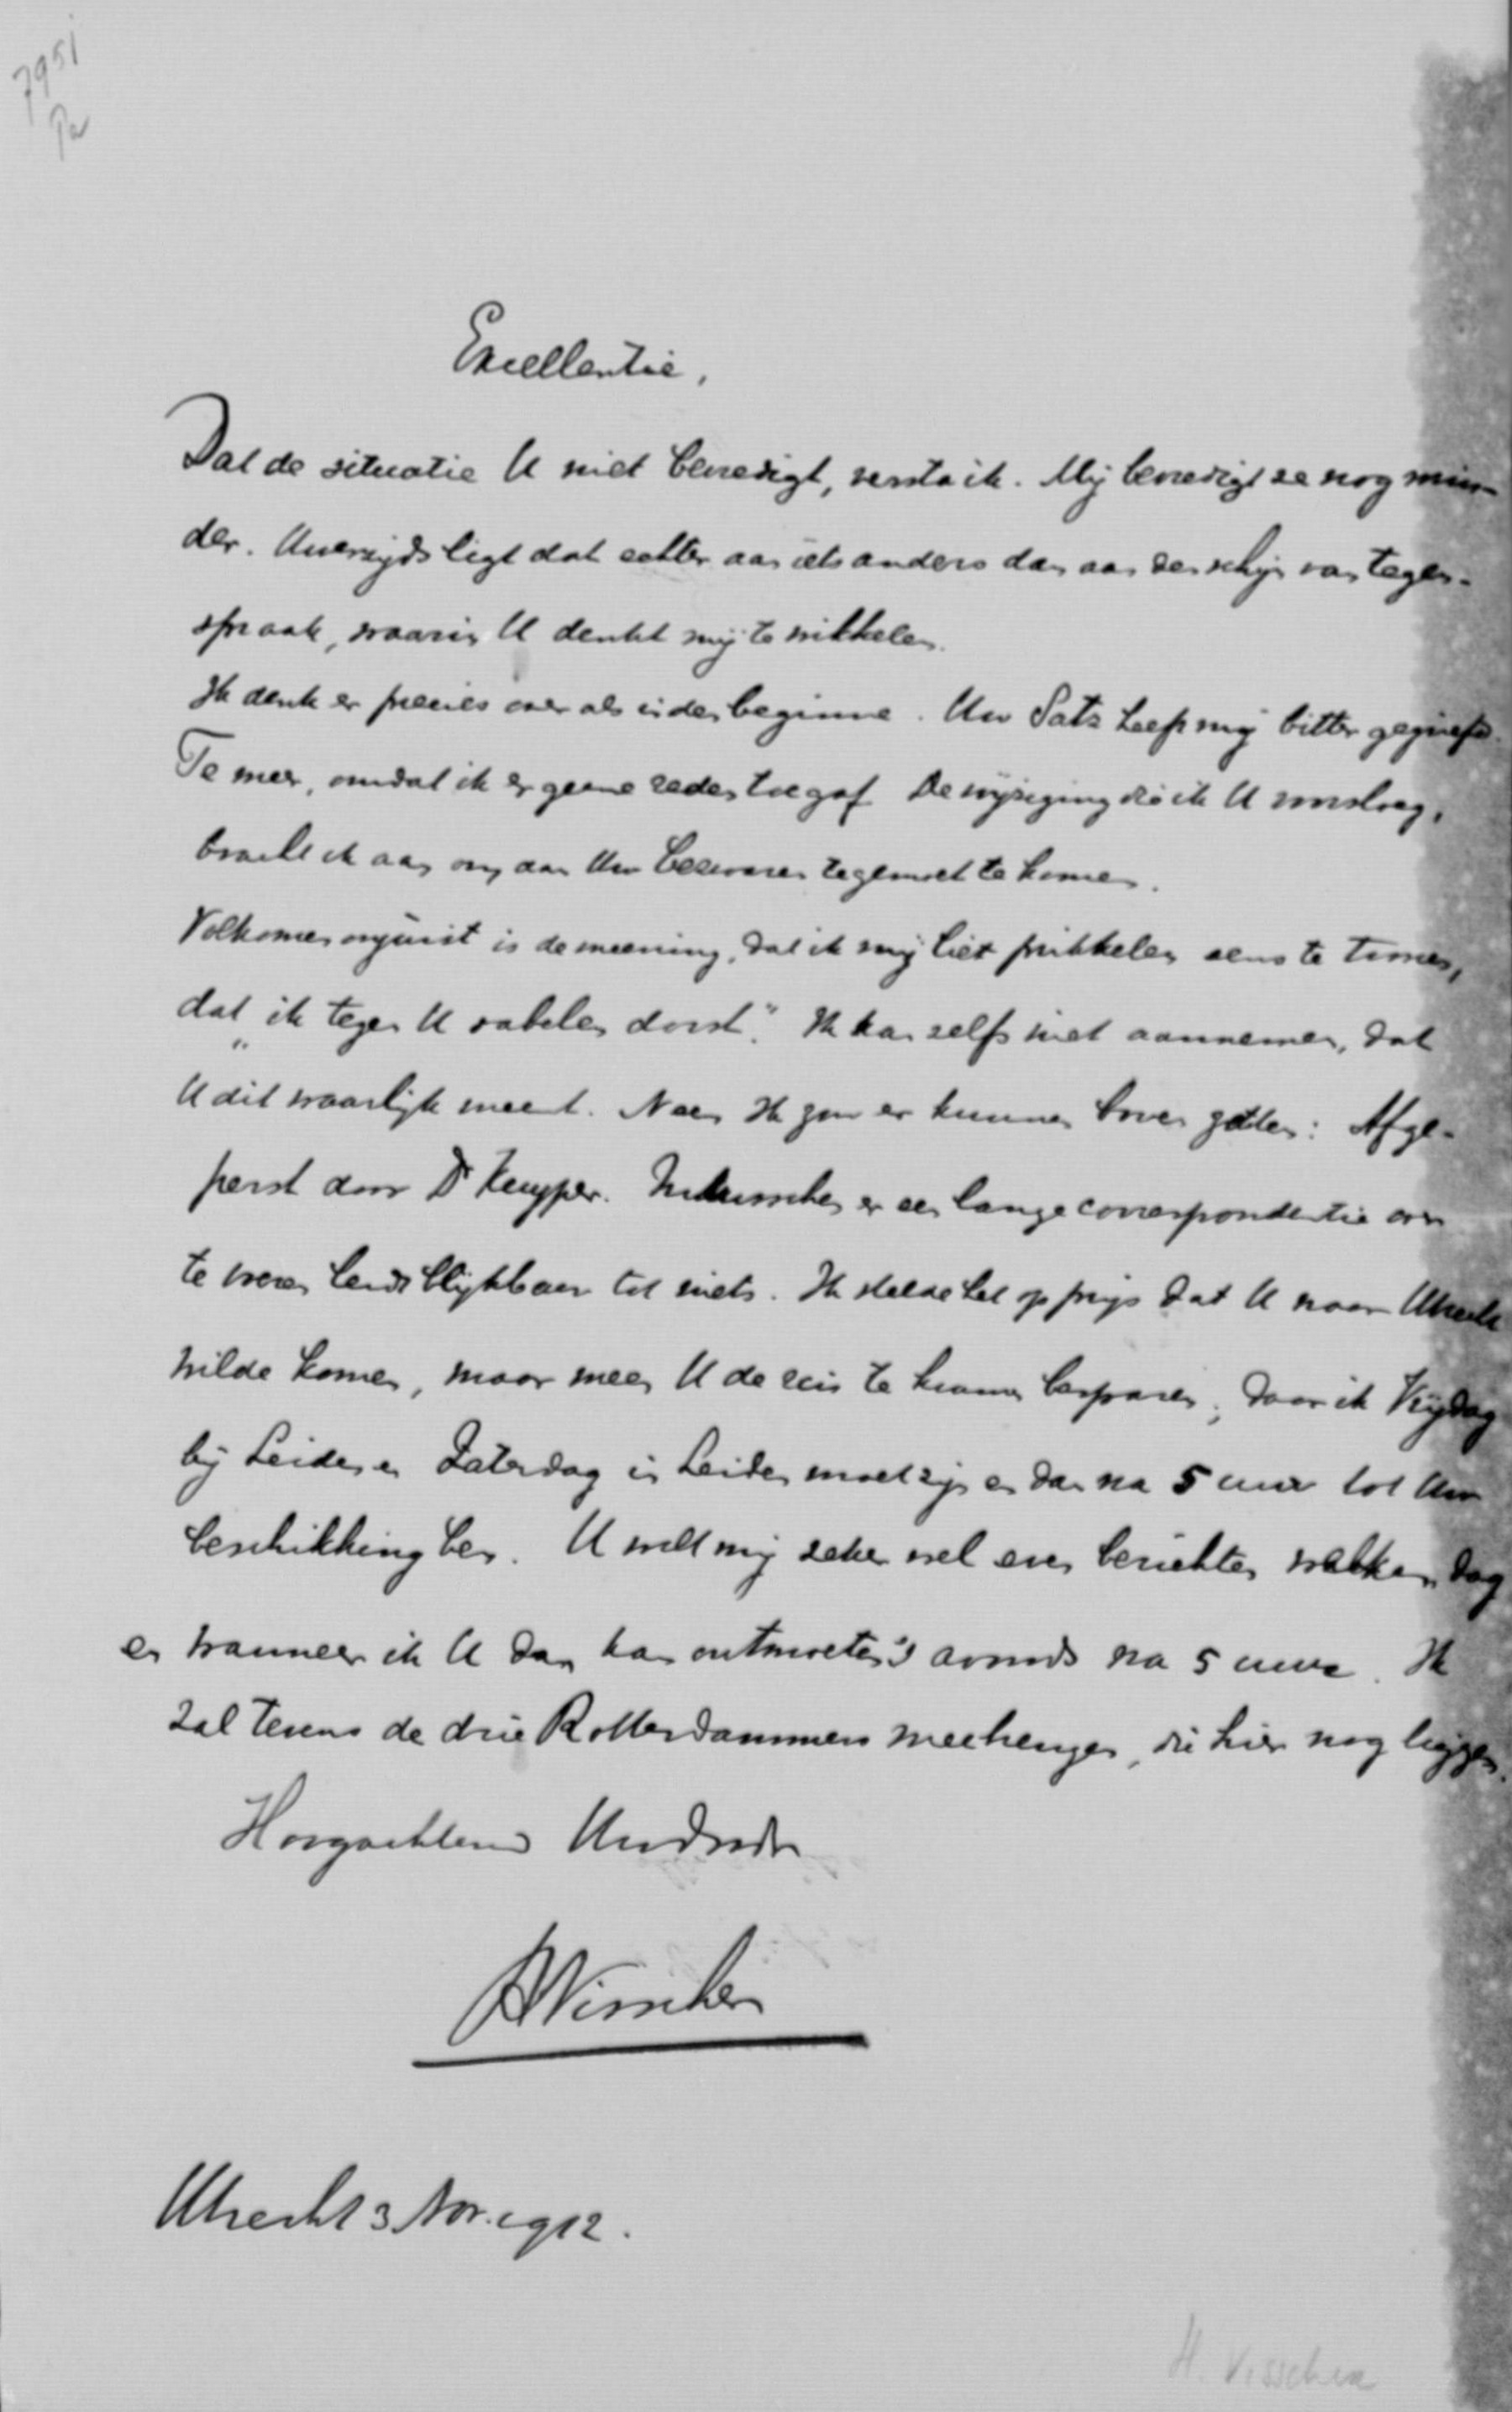 7951
Pa
Excellentie,
Dat de situatie U niet bevredigt, versta ik. Mij bevredigt ze nog min-
der. Uwerzijds ligt dat echter aan iets anders dan aan den schijn van tegen-
spraak, waarin U denkt mij te wikkelen.
Ik denk er precies over als in den beginne. Uw Satz heeft mij bitter gegriefd.
Te meer, omdat ik er geene reden toe gaf. De wijziging die ik U voorsloeg,
bracht ik aan om aan Uw bezwaren tegemoet te komen.
Volkomen onjuist is de meening, dat ik mij liet prikkelen eens te toonen,
dat „ik tegen U rabelen dorst." Ik kan zelfs niet aannemen, dat
U dit waarlijk meent. Neen Ik zou er kunnen boven zetten: Afge-
perst door Dr Kuyper. Intusschen er een lange correspondentie over
te voeren leidt blijkbaar tot niets. Ik stelde het op prijs dat U naar Utrecht
wilde komen, maar meen U de reis te kunnen besparen, daar ik Vrijdag
bij Leiden en Zaterdag in Leiden moet zijn en dan na 5 uur tot Uw
beschikking ben. U wilt mij zeker wel even berichten welken dag
en wanneer ik U dan kan ontmoeten 's avonds na 5 uur. Ik
zal tevens de drie Rotterdammers meebrengen, die hier nog liggen.
Hoogachtend Uwdwdr
HVisscher
Utrecht 3 Nov. 1912.
H. Visscher